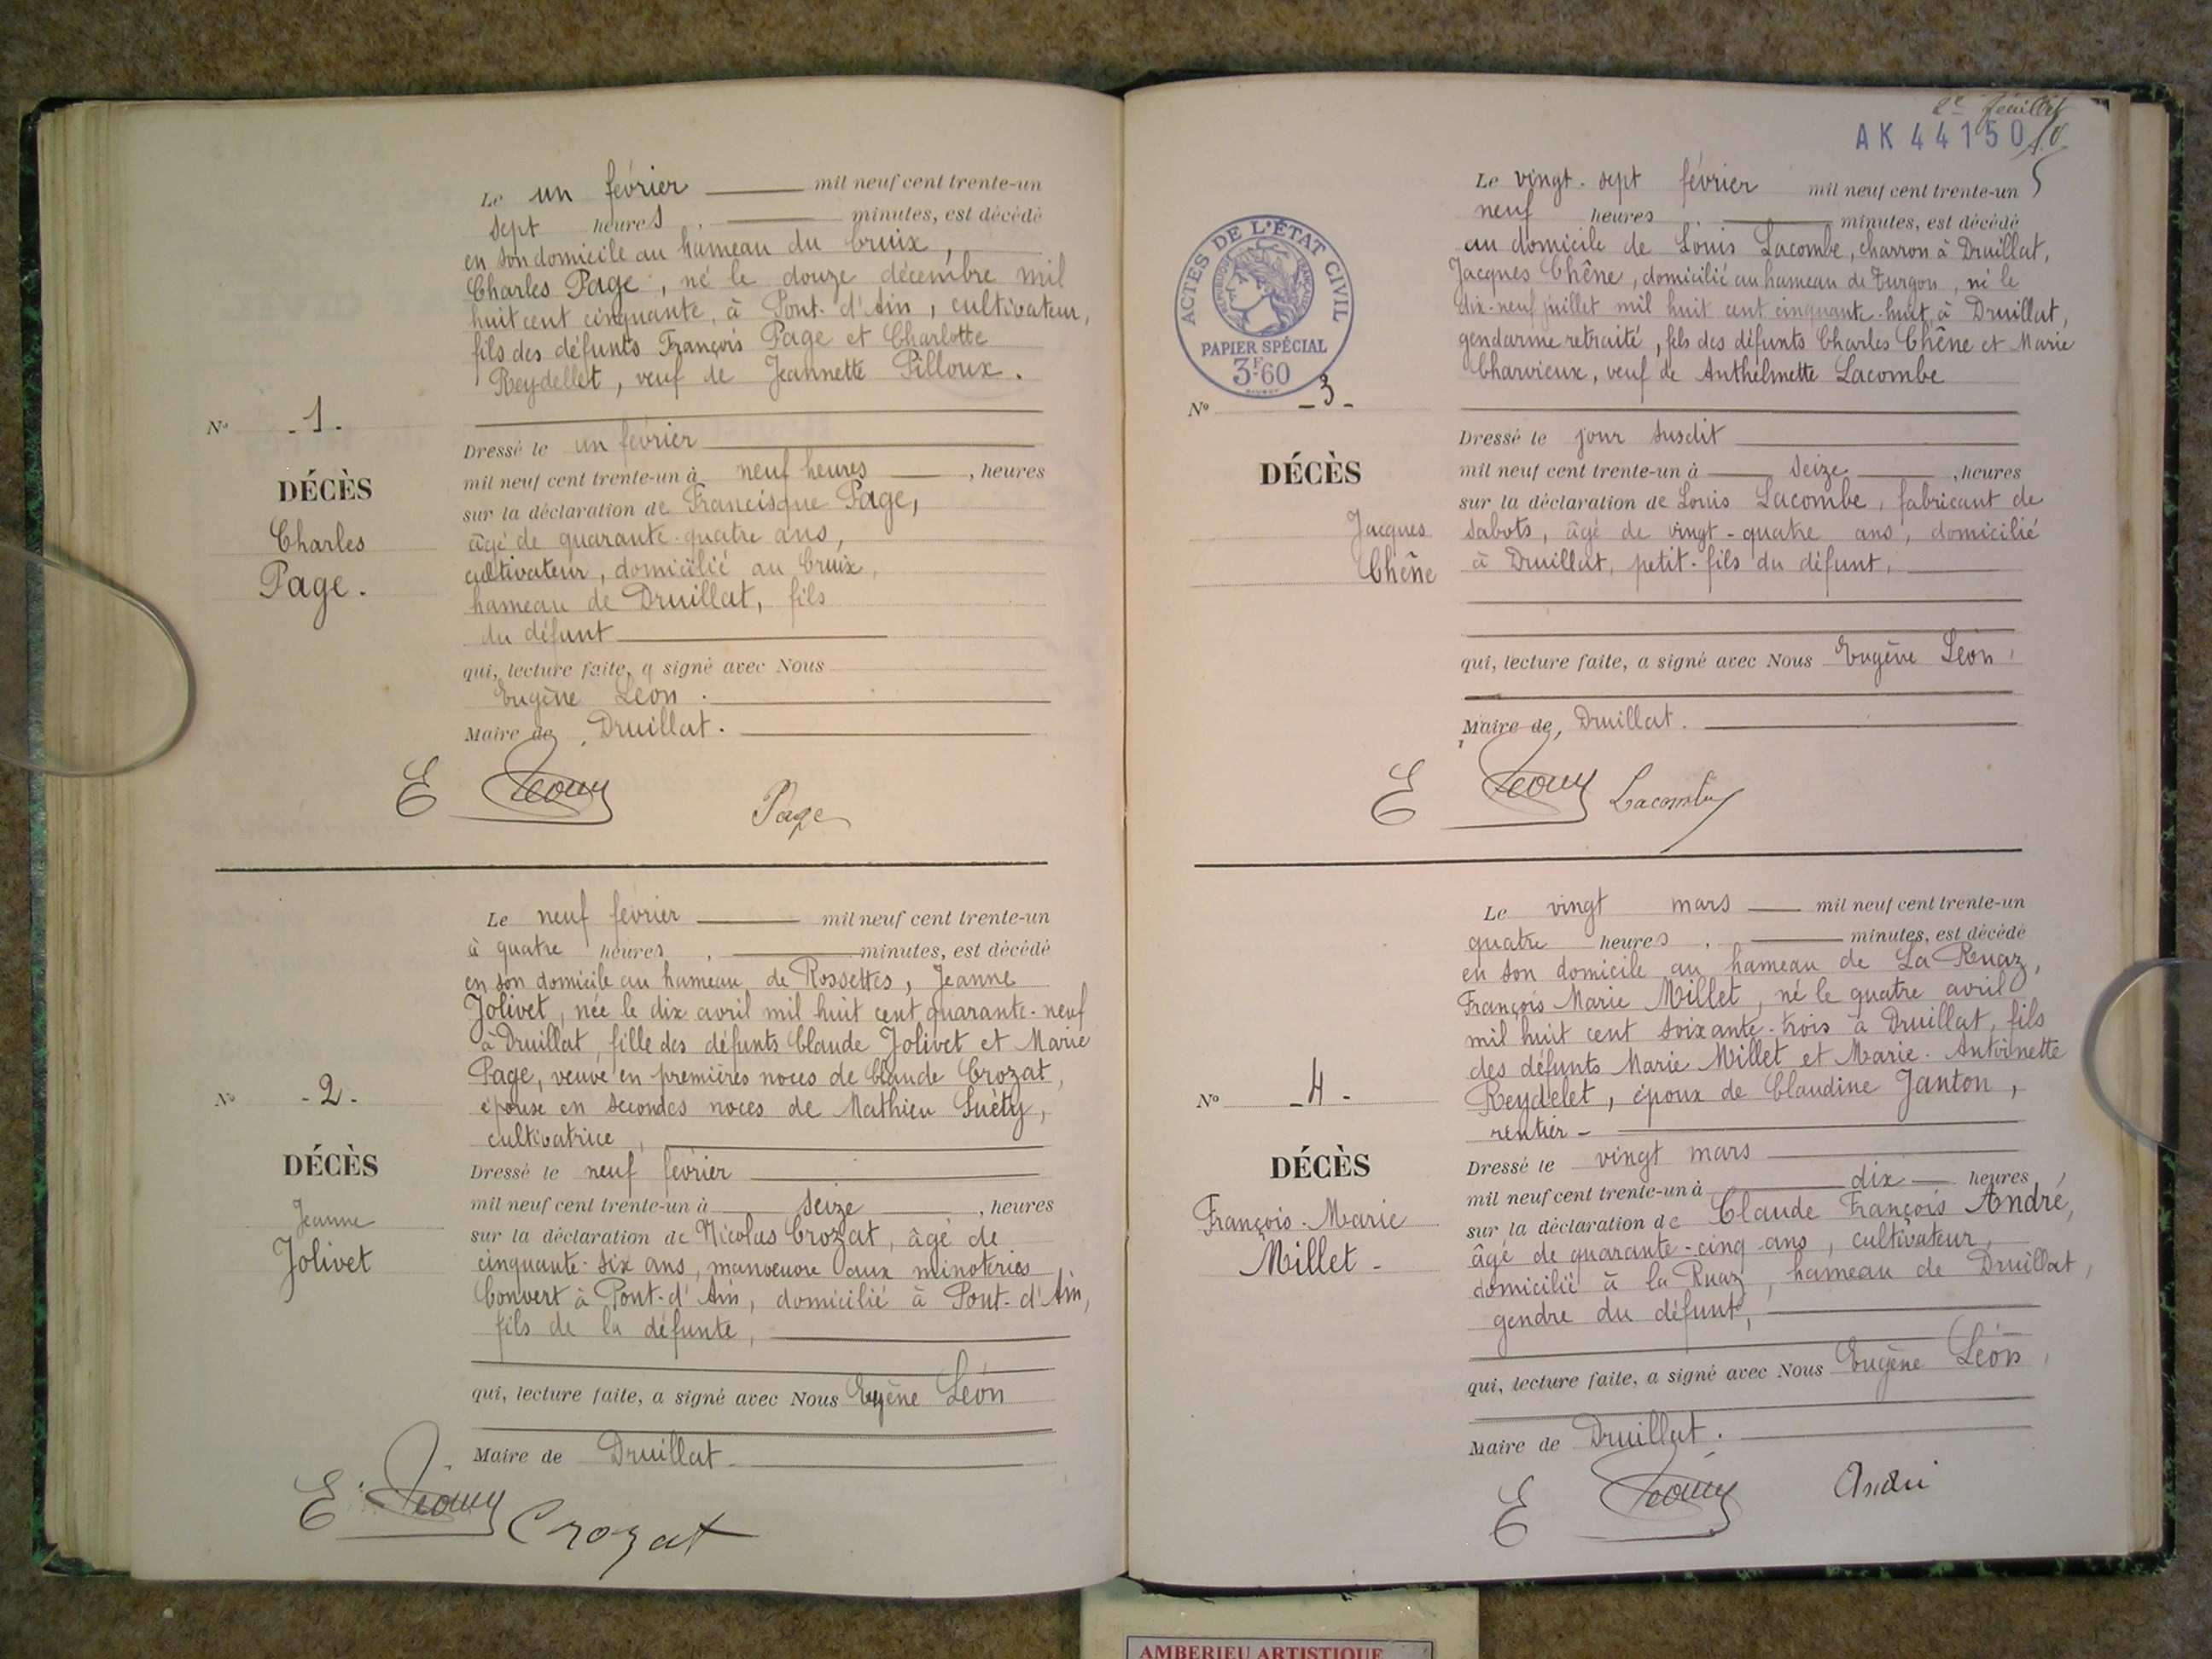 Le un février mil neuf cent trente-un
sept heures , minutes, est décédé
en son domicile au hameau du Cruix,
Charles Page, né le douze décembre mil
huit cent cinquante, à Pont-d'Ain, cultivateur,
fils des défunts François Page et Charlotte
Reydellet, veuf de Jeannette Pilloux.
No -1-
DÉCÈS
Charles
Page.
Dressé le un février
mil neuf cent trente-un à neuf heures , heures
sur la déclaration de Francisque Page,
âgé de quarante-quatre ans,
cultivateur, domicilié au Cruix,
hameau de Druillat, fils
du défunt
qui, lecture faite, a signé avec Nous
Eugène Léon.
Maire de Druillat.
E Léon
Page
Le neuf février mil neuf cent trente-un
à quatre heures , minutes, est décédé
en son domicile au hameau de Rossettes, Jeanne
Jolivet, née le dix avril mil huit cent quarante-neuf
à Druillat, fille des défunts Claude Jolivet et Marie
Page, veuve en premières noces de Claude Crozat,
épouse en secondes noces de Mathieu Suèty,
cultivatrice,
No -2-
DÉCÈS
Jeanne
Jolivet
Dressé le neuf février
mil neuf cent trente-un à seize , heures
sur la déclaration de Nicolas Crozat, âgé de
cinquante-six ans, manœuvre aux minoteries
Convert à Pont-d'Ain, domicilié à Pont-d'Ain,
fils de la défunte,
qui, lecture faite, a signé avec Nous Eugène Léon
Maire de Druillat.
E. Léon Crozat
2e feuillet
AK 44150
Le vingt-sept février mil neuf cent trente-un
neuf heures , minutes, est décédé
au domicile de Louis Lacombe, charron à Druillat,
Jacques Chêne, domicilié au hameau de Turgon, né le
dix-neuf juillet mil huit cent cinquante-huit, à Druillat,
gendarme retraité, fils des défunts Charles Chêne et Marie
Charvieux, veuf de Anthelmette Lacombe
ACTES DE L'ÉTAT CIVIL
RÉPUBLIQUE FRANÇAISE
PAPIER SPÉCIAL
3F60
No -3-
DÉCÈS
Jacques
Chêne
Dressé le jour susdit
mil neuf cent trente-un à seize , heures
sur la déclaration de Louis Lacombe, fabricant de
sabots, âgé de vingt-quatre ans, domicilié
à Druillat, petit-fils du défunt,
qui, lecture faite, a signé avec Nous Eugène Léon,
Maire de, Druillat.
E Léon Lacombe
Le vingt mars mil neuf cent trente-un
quatre heures , minutes, est décédé
en son domicile au hameau de La Ruaz,
François Marie Millet, né le quatre avril
mil huit cent soixante-trois à Druillat, fils
des défunts Marie Millet et Marie-Antoinette
Reydelet, époux de Claudine Janton,
rentier -
No -4-
DÉCÈS
François-Marie
Millet -
Dressé le vingt mars
mil neuf cent trente-un à dix heures
sur la déclaration de Claude François André,
âgé de quarante-cinq ans, cultivateur,
domicilié à la Ruaz, hameau de Druillat,
gendre du défunt,
qui, lecture faite, a signé avec Nous Eugène Léon,
Maire de Druillat.
E Léon André
AMBERIEU ARTISTIQUE